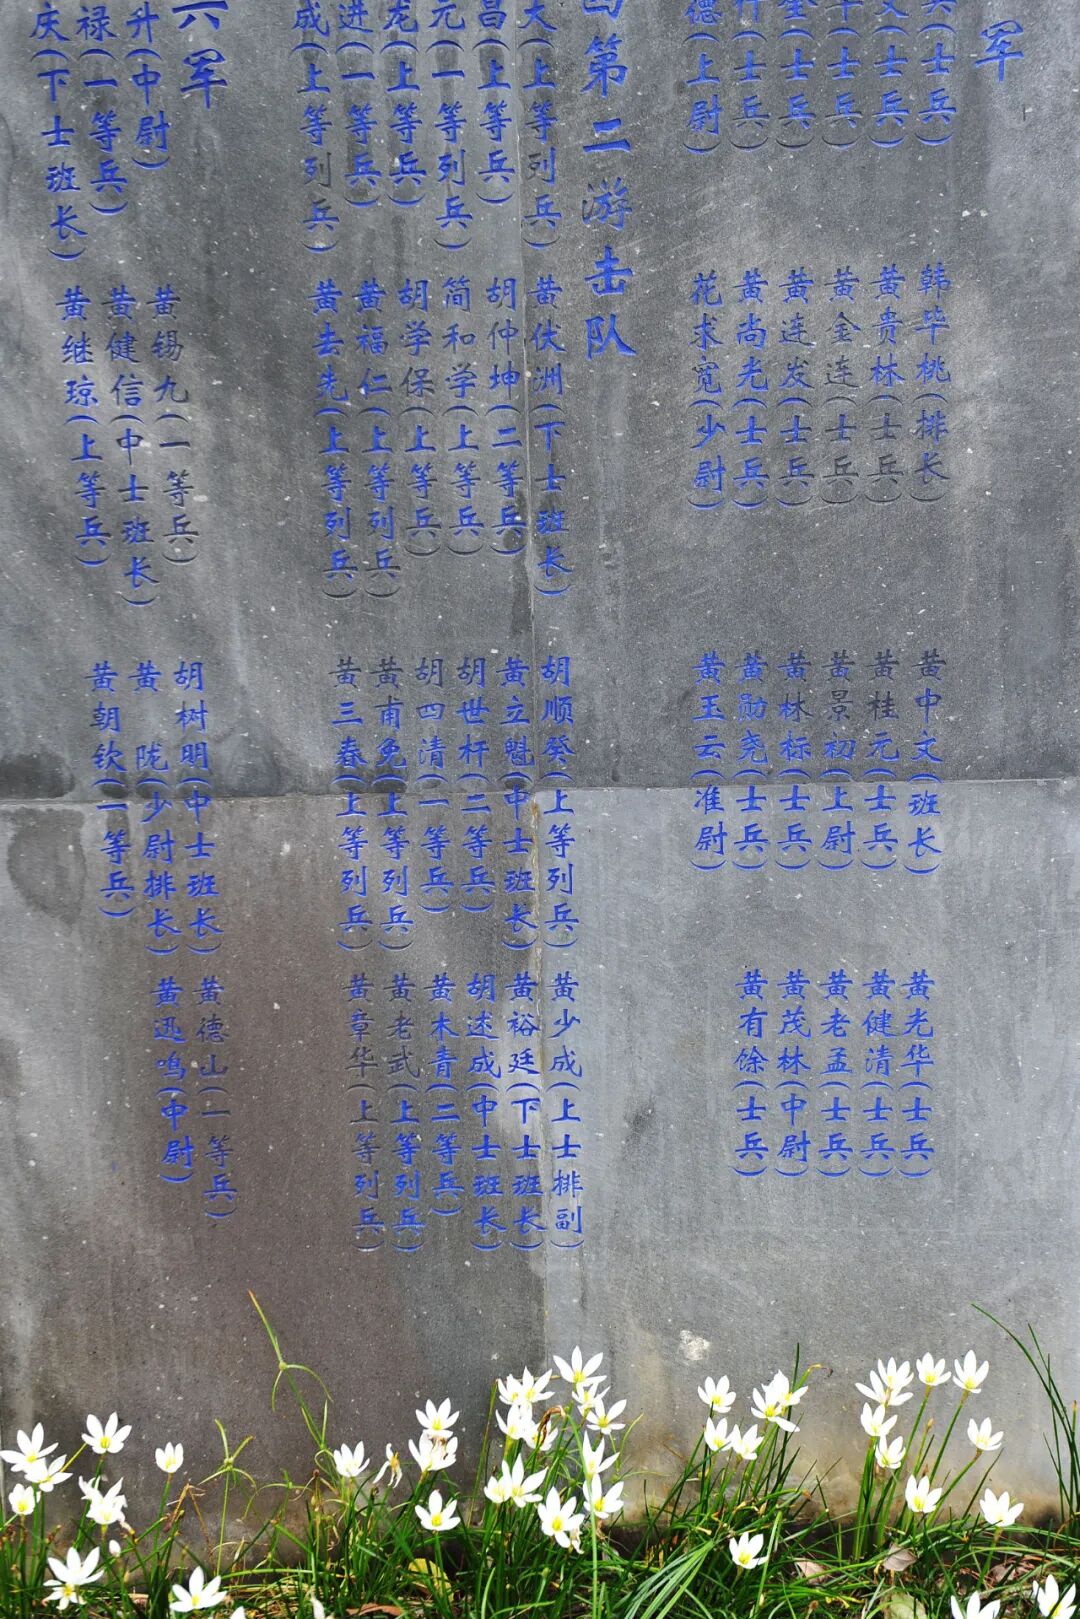 军
(士兵) 韩毕桃(排长) 黄中文(班长) 黄光华(士兵)
文(士兵) 黄贵林(士兵) 黄桂元(士兵) 黄健清(士兵)
(士兵) 黄金连(士兵) 黄景初(上尉) 黄老孟(士兵)
(士兵) 黄连发(士兵) 黄林标(士兵) 黄茂林(中尉)
(士兵) 黄尚光(士兵) 黄勋尧(士兵) 黄有馀(士兵)
德(上尉) 花求宽(少尉) 黄玉云(准尉)
第二游击队
大(上等列兵) 黄伏洲(下士班长) 胡顺癸(上等列兵) 黄少成(上士排副)
昌(上等兵) 胡仲坤(二等兵) 黄立魁(中士班长) 黄裕廷(下士班长)
元(一等列兵) 简和学(上等兵) 胡世杆(二等兵) 胡述成(中士班长)
龙(上等兵) 胡学保(上等兵) 胡四清(一等兵) 黄木青(二等兵)
进(一等兵) 黄福仁(上等列兵) 黄甫免(上等列兵) 黄老武(上等列兵)
成(上等列兵) 黄去先(上等列兵) 黄三春(上等列兵) 黄章华(上等列兵)
六军
升(中尉) 黄锡九(一等兵) 胡树明(中士班长) 黄德山(一等兵)
禄(一等兵) 黄健信(中士班长) 黄陇(少尉排长) 黄迅鸣(中尉)
庆(下士班长) 黄继琼(上等兵) 黄朝钦(一等兵)